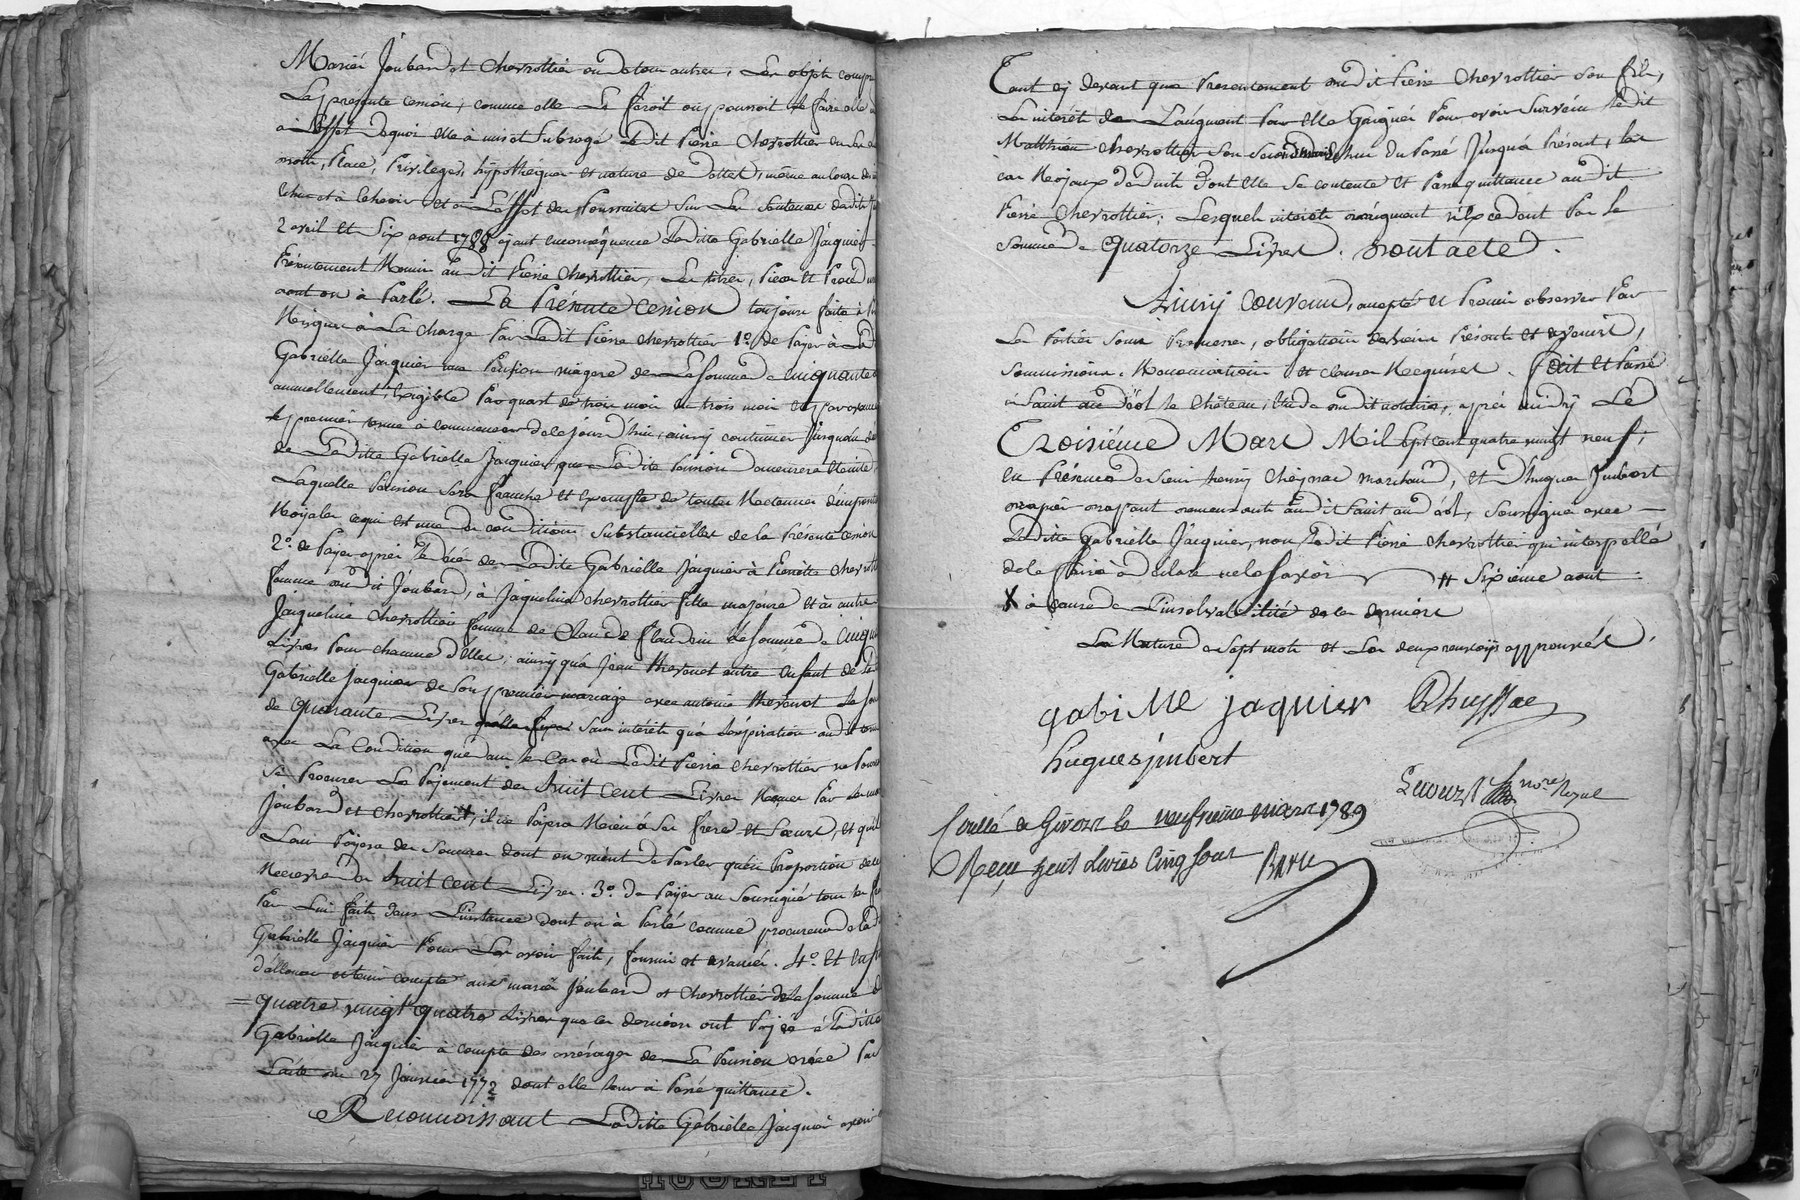 Mariés Joubard et Chevrottier ou de tous autres, les objets compris
La présente cession, comme elle le feroit ou pourroit le faire elle
à L'effet de quoi elle à mis et subrogé ledit Pierre Chevrottier en ses
noms, Place, Privileges, hypothéques et nature de dettes, même au lourdes
et à L'effet des Poursuites sur les Sentences desdits
2 avril et Six aout 1788 ayant enconséquence Laditte Gabrielle Jacquier
Présentement Remis audit Pierre Chevrottier, les titres, Pieces et Procedures
dont on à Parlé. La Présente Cession toujours faite à
Risques à La charge Par Ledit Pierre Chevrottier 1.º de Payer à Lad
Gabrielle Jacquier une Pension viagere de La Somme de cinquante
annuellement, Exigible Par quart de trois mois en trois mois et par avance
le premier terme à commencer de ce jourd'hui, ainsy continuer jusqu'au deces
de Laditte Gabrielle Jacquier que Ladite Pension demeurera éteinte,
Laquelle Pension sera franche et exempte de toutes Retenues d'impositions
Royales ce qui est une des conditions Substancielles de la Présente Cession
2.º de Payer après le décès de Ladite Gabrielle Jacquier à Pierrette Chevrottier
femme dudit Joubard, à Jaqueline Chevrottier fille majeure et à autre
Jaqueline Chevrottier femme de Claude Flandrin la Somme de Cinq
Livres Pour chacune d'elles, ainsy qu'à Jean Thevenot autre enfant de lad
Gabrielle Jacquier de Son premier mariage avec antoine Thevenot la somme
de Quarante Livres Sans intérêts qu'à L'expiration dudit terme
avec La Condition que dans le Cas où Ledit Pierre Chevrottier ne Pourroit
se Procurer Le Payement des huit cent Livres Remises Par les mariés
Joubard et Chevrottier, il ne Payera Rien à Ses frere et Sœurs, et qu'il
Leur Payera des Sommes dont on vient de Parler qu'en Proportion de la
Recevra des huit cent Livres. 3.º de Payer au Soussigné tous les frais
Par Lui faits dans L'instance dont on à Parlé comme procureur de lad
Gabrielle Jacquier Pour Les avoir faits, fournis et avancés. 4.º Et enfin
d'allouer et tenir compte aux mariés Joubard et Chevrottier de la somme de
quatre vingt quatre Livres que ces derniers ont Payée à Laditte
Gabrielle Jacquier à compte des arrérages de La Pension créée Par
L'acte du 27 Janvier 1773 dont elle leur à Passé quittance.
Reconnoissant Laditte Gabrielle Jacquier avoir
Tant cy devant que Presentement dudit Pierre Chevrottier Son fils,
Les intérêts de L'augment Par Elle Gaignés Pour avoir Survécu Ledit
Matthieu Chevrottier Son Second mari échus du Passé Jusqu'à Présent, les
cas Royaux déduits dont elle Se contente et Passe quittance audit
Pierre Chevrottier, Lesquels intérêts n'excedent Pas la
Somme de quatorze Livres. Dont acte.
Ainsy Convenu, accepté et Promis observer Par
Les Parties Sous Peines, obligation de biens Présents et avenirs,
Soumissions, Renonciations et clauses Requises. Fait et Passé
à Saint andéol le Château, Etude dudit notaire, après midy Le
Troisiéme Mars Mil Sept cent quatre vingt neuf,
en Présence de Sieur henry Cheynac marchand, et d'hugues Imbert
papier demeurants audit Saint andéol, Soussignés avec
Laditte Gabrielle Jacquier, non Ledit Pierre Chevrottier qui interpellé
de le faire à declaré ne le Savoir # Sixieme aout
X à cause de L'insolvabilité de ces derniers
La Rature de Sept mots et Les deux renvoys approuvés.
gabrielle jaquier Dhuyssac
hugues imbert
nore Royal
Controllé a Givors le neufvieme mars 1789
Reçu Livres Cinq Sous